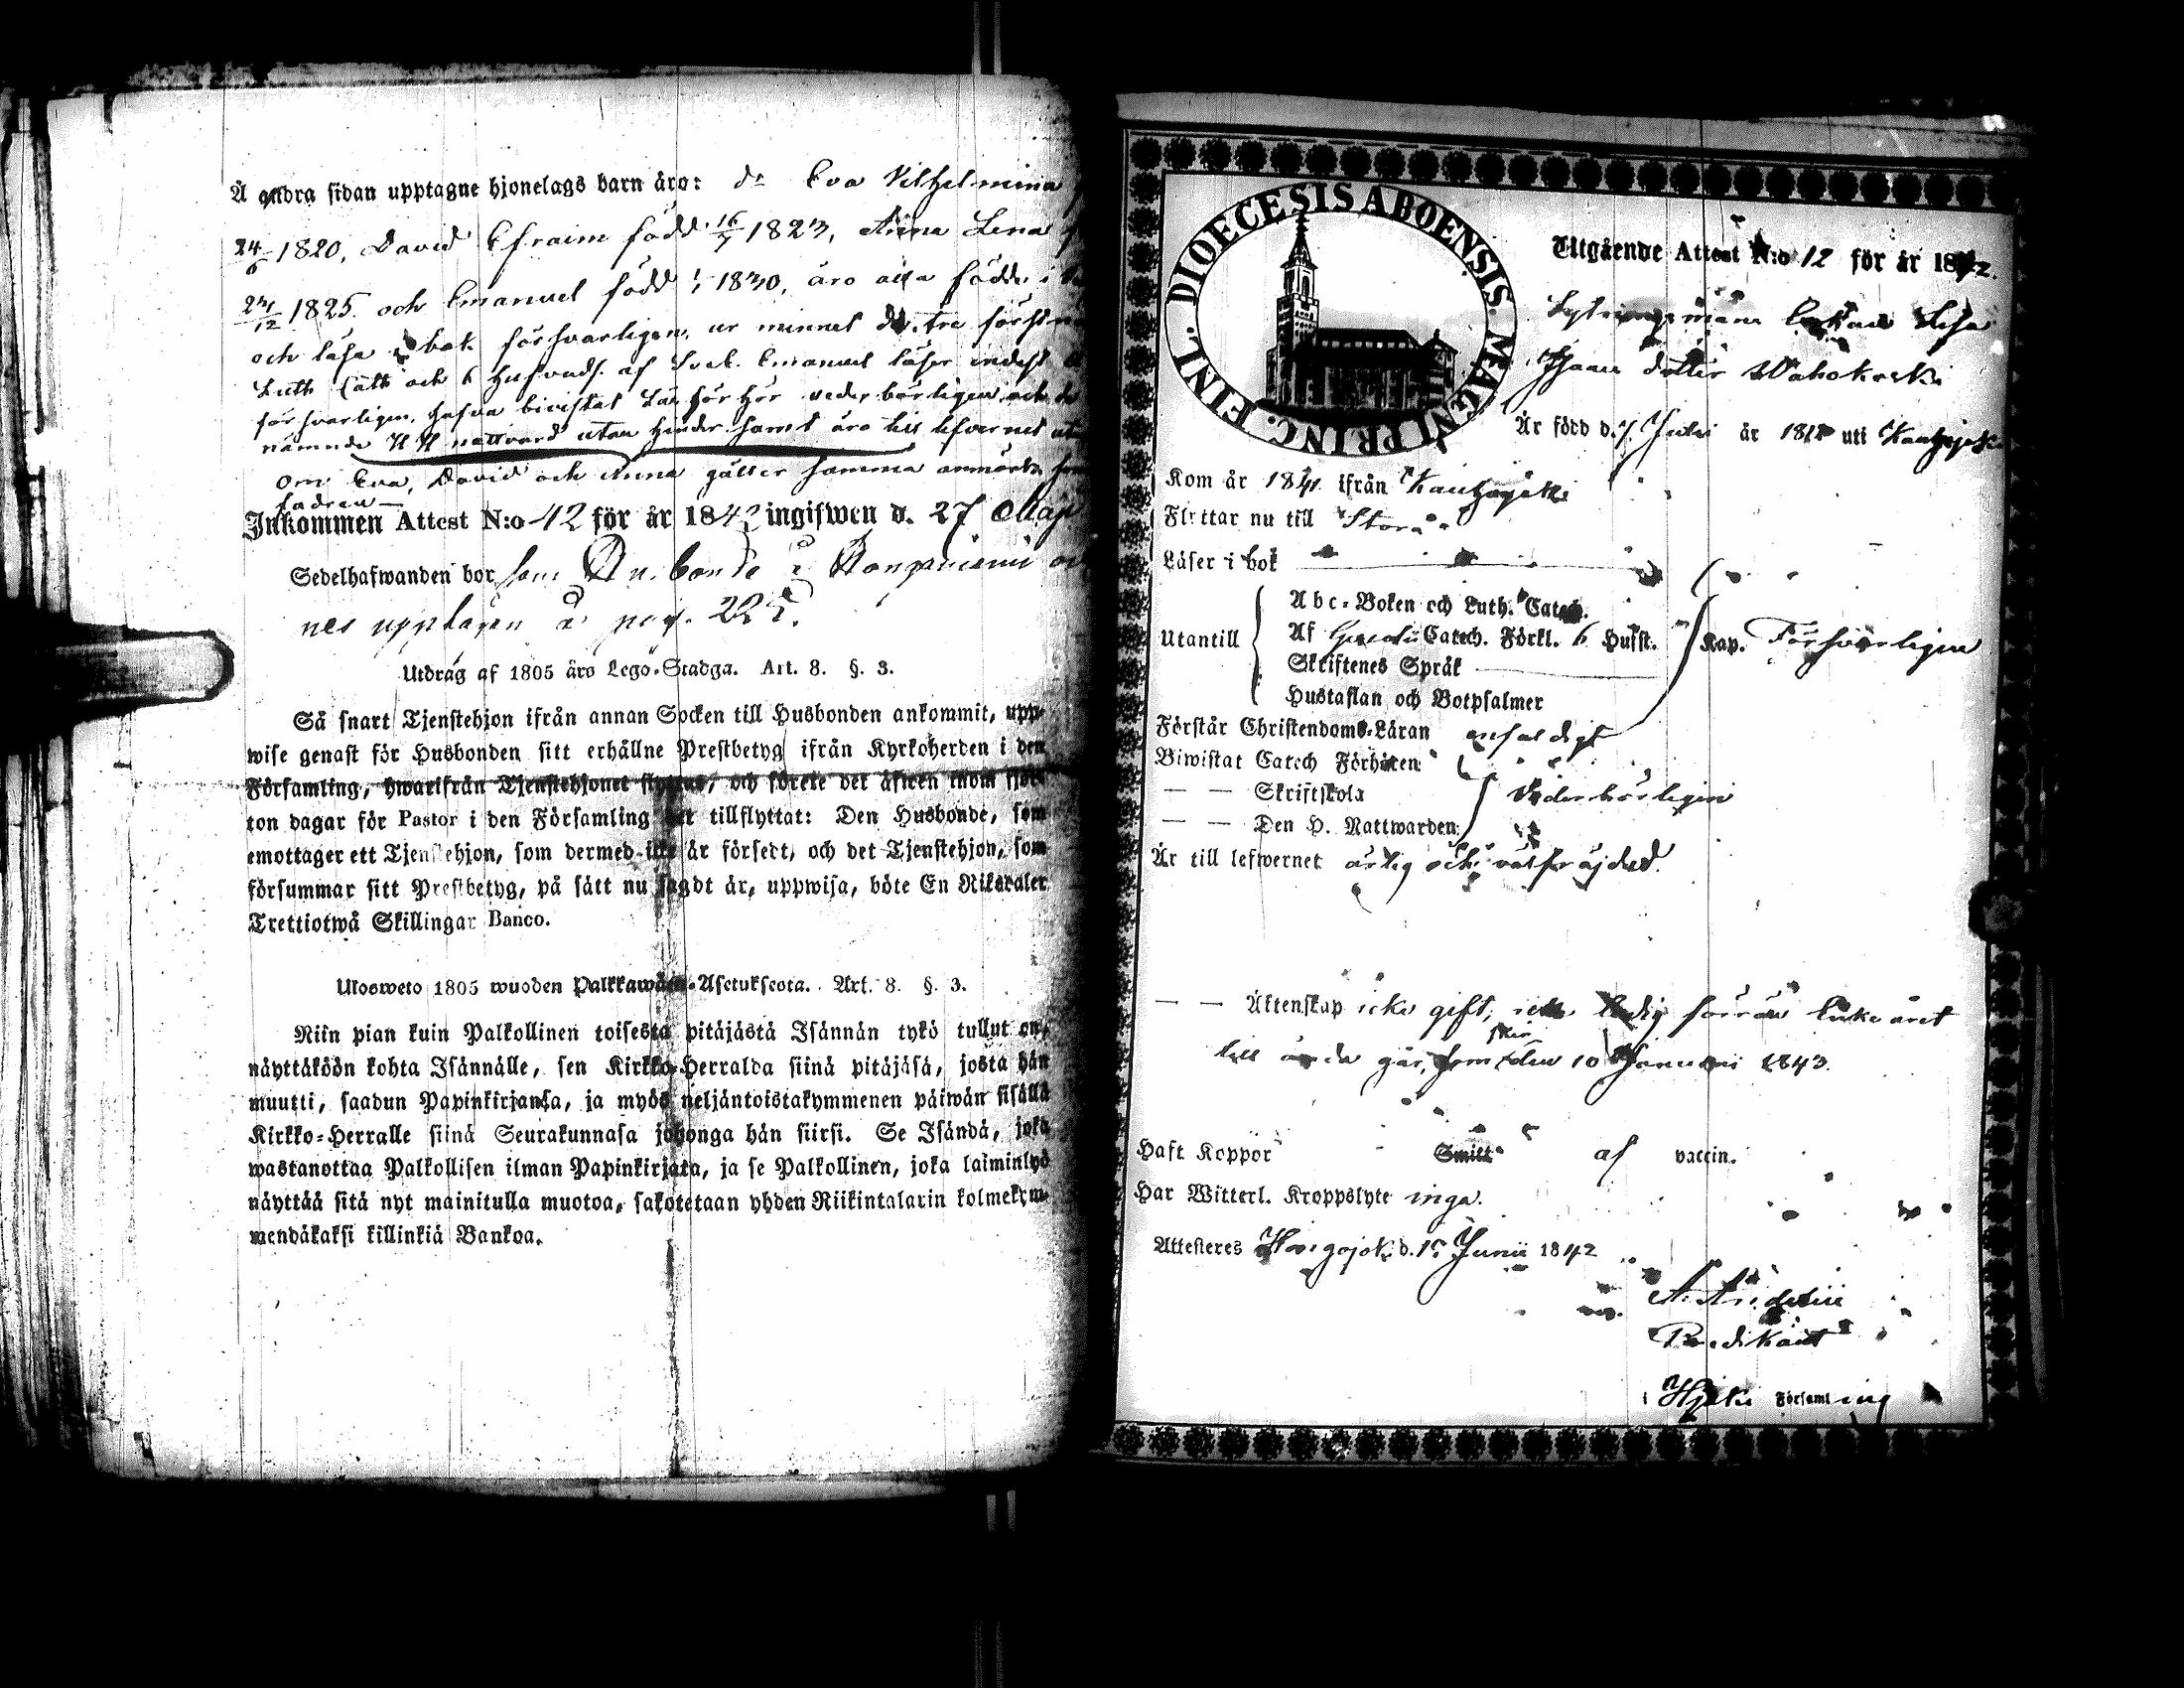 Å andra sidan upptagne hjonelags barn äro: dr Eva Vilhelmina
24/6 1820, David Efraim född 16/7 1823, Anna Lena
23/12 1825. och Emanuel född 1830, äro alla födde i
och läsa i bok försvarligen, ur minnet de tre först
Luth Cath och 6 Hufvuds. af Sveb. Emanuel läser endast
försvarligen, hafva bivistat Läs förhör vederbörligen och
nämnde H H nattvard utan hinder samt äro till lefvernet
om Eva, David och Anna gäller samma anmärkn. som
fadren —
Inkommen Attest N:o 42 för år 1842 ingifwen d. 27 Maji
Sedelhafwanden bor som bonde i
nes upptagen å pag. 225.
Utdrag af 1805 års Lego-Stadga. Art. 8. §. 3.
Så snart Tjenstehjon ifrån annan Socken till Husbonden ankommit, upp-
wise genast för Husbonden sitt erhållne Prestbetyg ifrån Kyrkoherden i den
Församling, hwarifrån Tjenstehjonet flyttat, och förete det äfwen inom fjor-
ton dagar för Pastor i den Församling det tillflyttat: Den Husbonde, som
emottager ett Tjenstehjon, som dermed icke är försedt, och det Tjenstehjon, som
försummar sitt Prestbetyg, på sätt nu sagdt är, uppwisa, böte En Riksdaler
Trettiotwå Skillingar Banco.
Ulosweto 1805 wuoden Palkkawäen-Asetuksesta. Art. 8. §. 3.
Niin pian kuin Palkollinen toisesta pitäjästä Isännän tykö tullut on,
näyttäköön kohta Isännälle, sen Kirkko-Herralda siinä pitäjäsä, josta hän
muutti, saadun Papinkirjansa, ja myös neljäntoistakymmenen päiwän sisällä
Kirkko-Herralle siinä Seurakunnasa johonga hän siirsi. Se Isändä, joka
wastanottaa Palkollisen ilman Papinkirjata, ja se Palkollinen, joka laiminlyö
näyttää sitä nyt mainitulla muotoa, sakotetaan yhden Riikintalarin kolmekym-
mendäkaksi killinkiä Bankoa.
DIOECESIS ABOENSIS. MAGNI PRINC. FINL.
Utgående Attest N:o 12 för år 1842.
Lisa
dotter
Är född d. 7 Juli år 1818 uti
Kom år 1841 ifrån
Flyttar nu till Storå
Läser i bok
Utantill
Abc-Boken och Luth. Catech.
Af Catech. Förkl. 6 Hufst. Kap. Försvarligen
Skriftenes Språk
Hustaflan och Botpsalmer
Förstår Christendoms-Läran enfaldigt
Biwistat Catech Förhören
— — Skriftskola Vederbörligen
— — Den H. Nattwarden
Är till lefwernet ärlig och välfräjdad.
— — Äktenskap icke gift, icke ledig förrän Enke året
till ända går, som sker den 10 Januari 1843.
Haft Koppor Smitt af vaccin.
Har Witterl. Kroppslyte inga.
Attesteres d. 15 Junii 1842
Predikant
i Församling